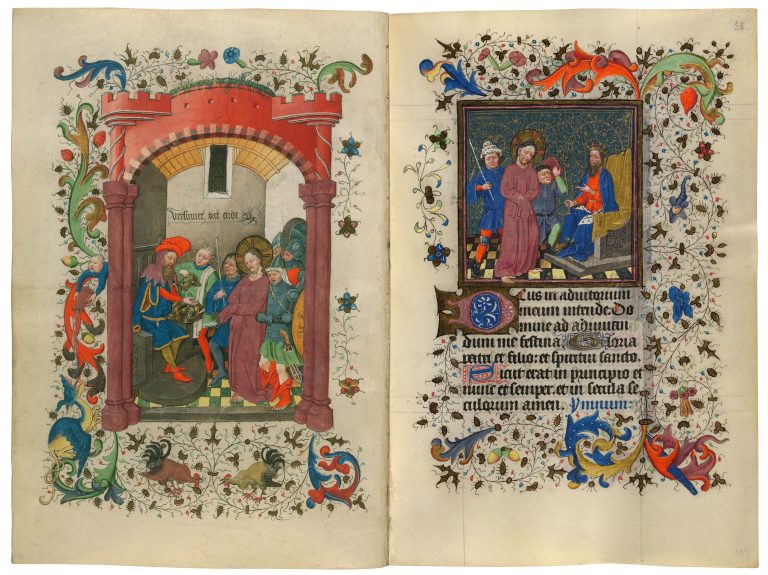 58
Deus in adiutorium
meum intende. Do
mine ad adiuvan
dum me festina. Gloria
patri et filio: et spiritui sancto.
Sicut erat in principio et
nunc et semper. et in secula se
culorum amen. Ymnum: